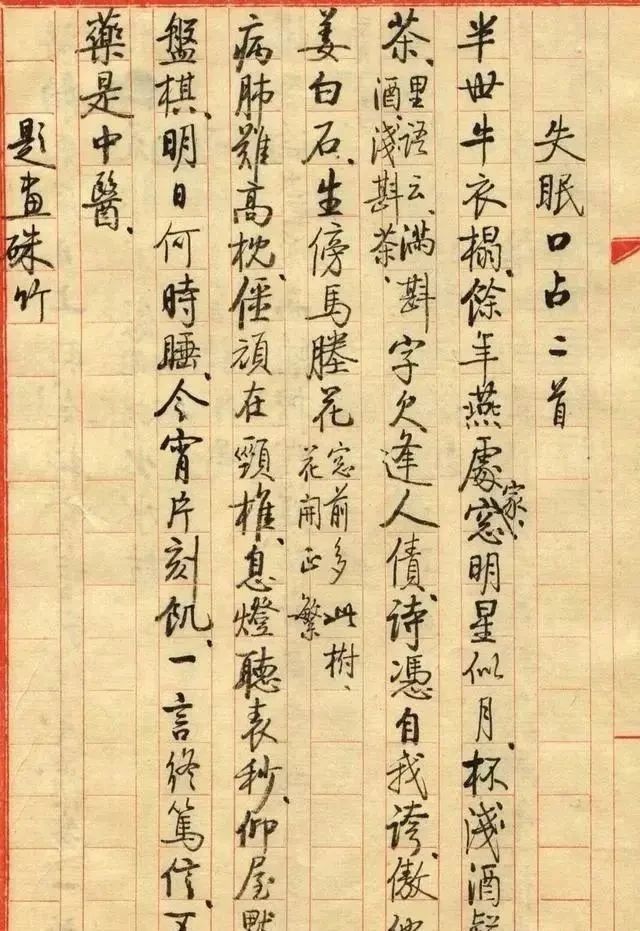 失眠口占二首
半世牛衣榻、餘年燕處家、窓明星似月、杯淺酒
茶、里語云、滿斟酒、淺斟茶、字欠逢人債、詩憑自我誇、傲
姜白石、生傍馬塍花窓前多此樹、花開正繁
病肺難高枕、僵頑在頸椎、息燈聽表秒、仰屋
盤棋、明日何時睡、今宵片刻飢、一言終篤信、
藥是中醫、
題畫硃竹